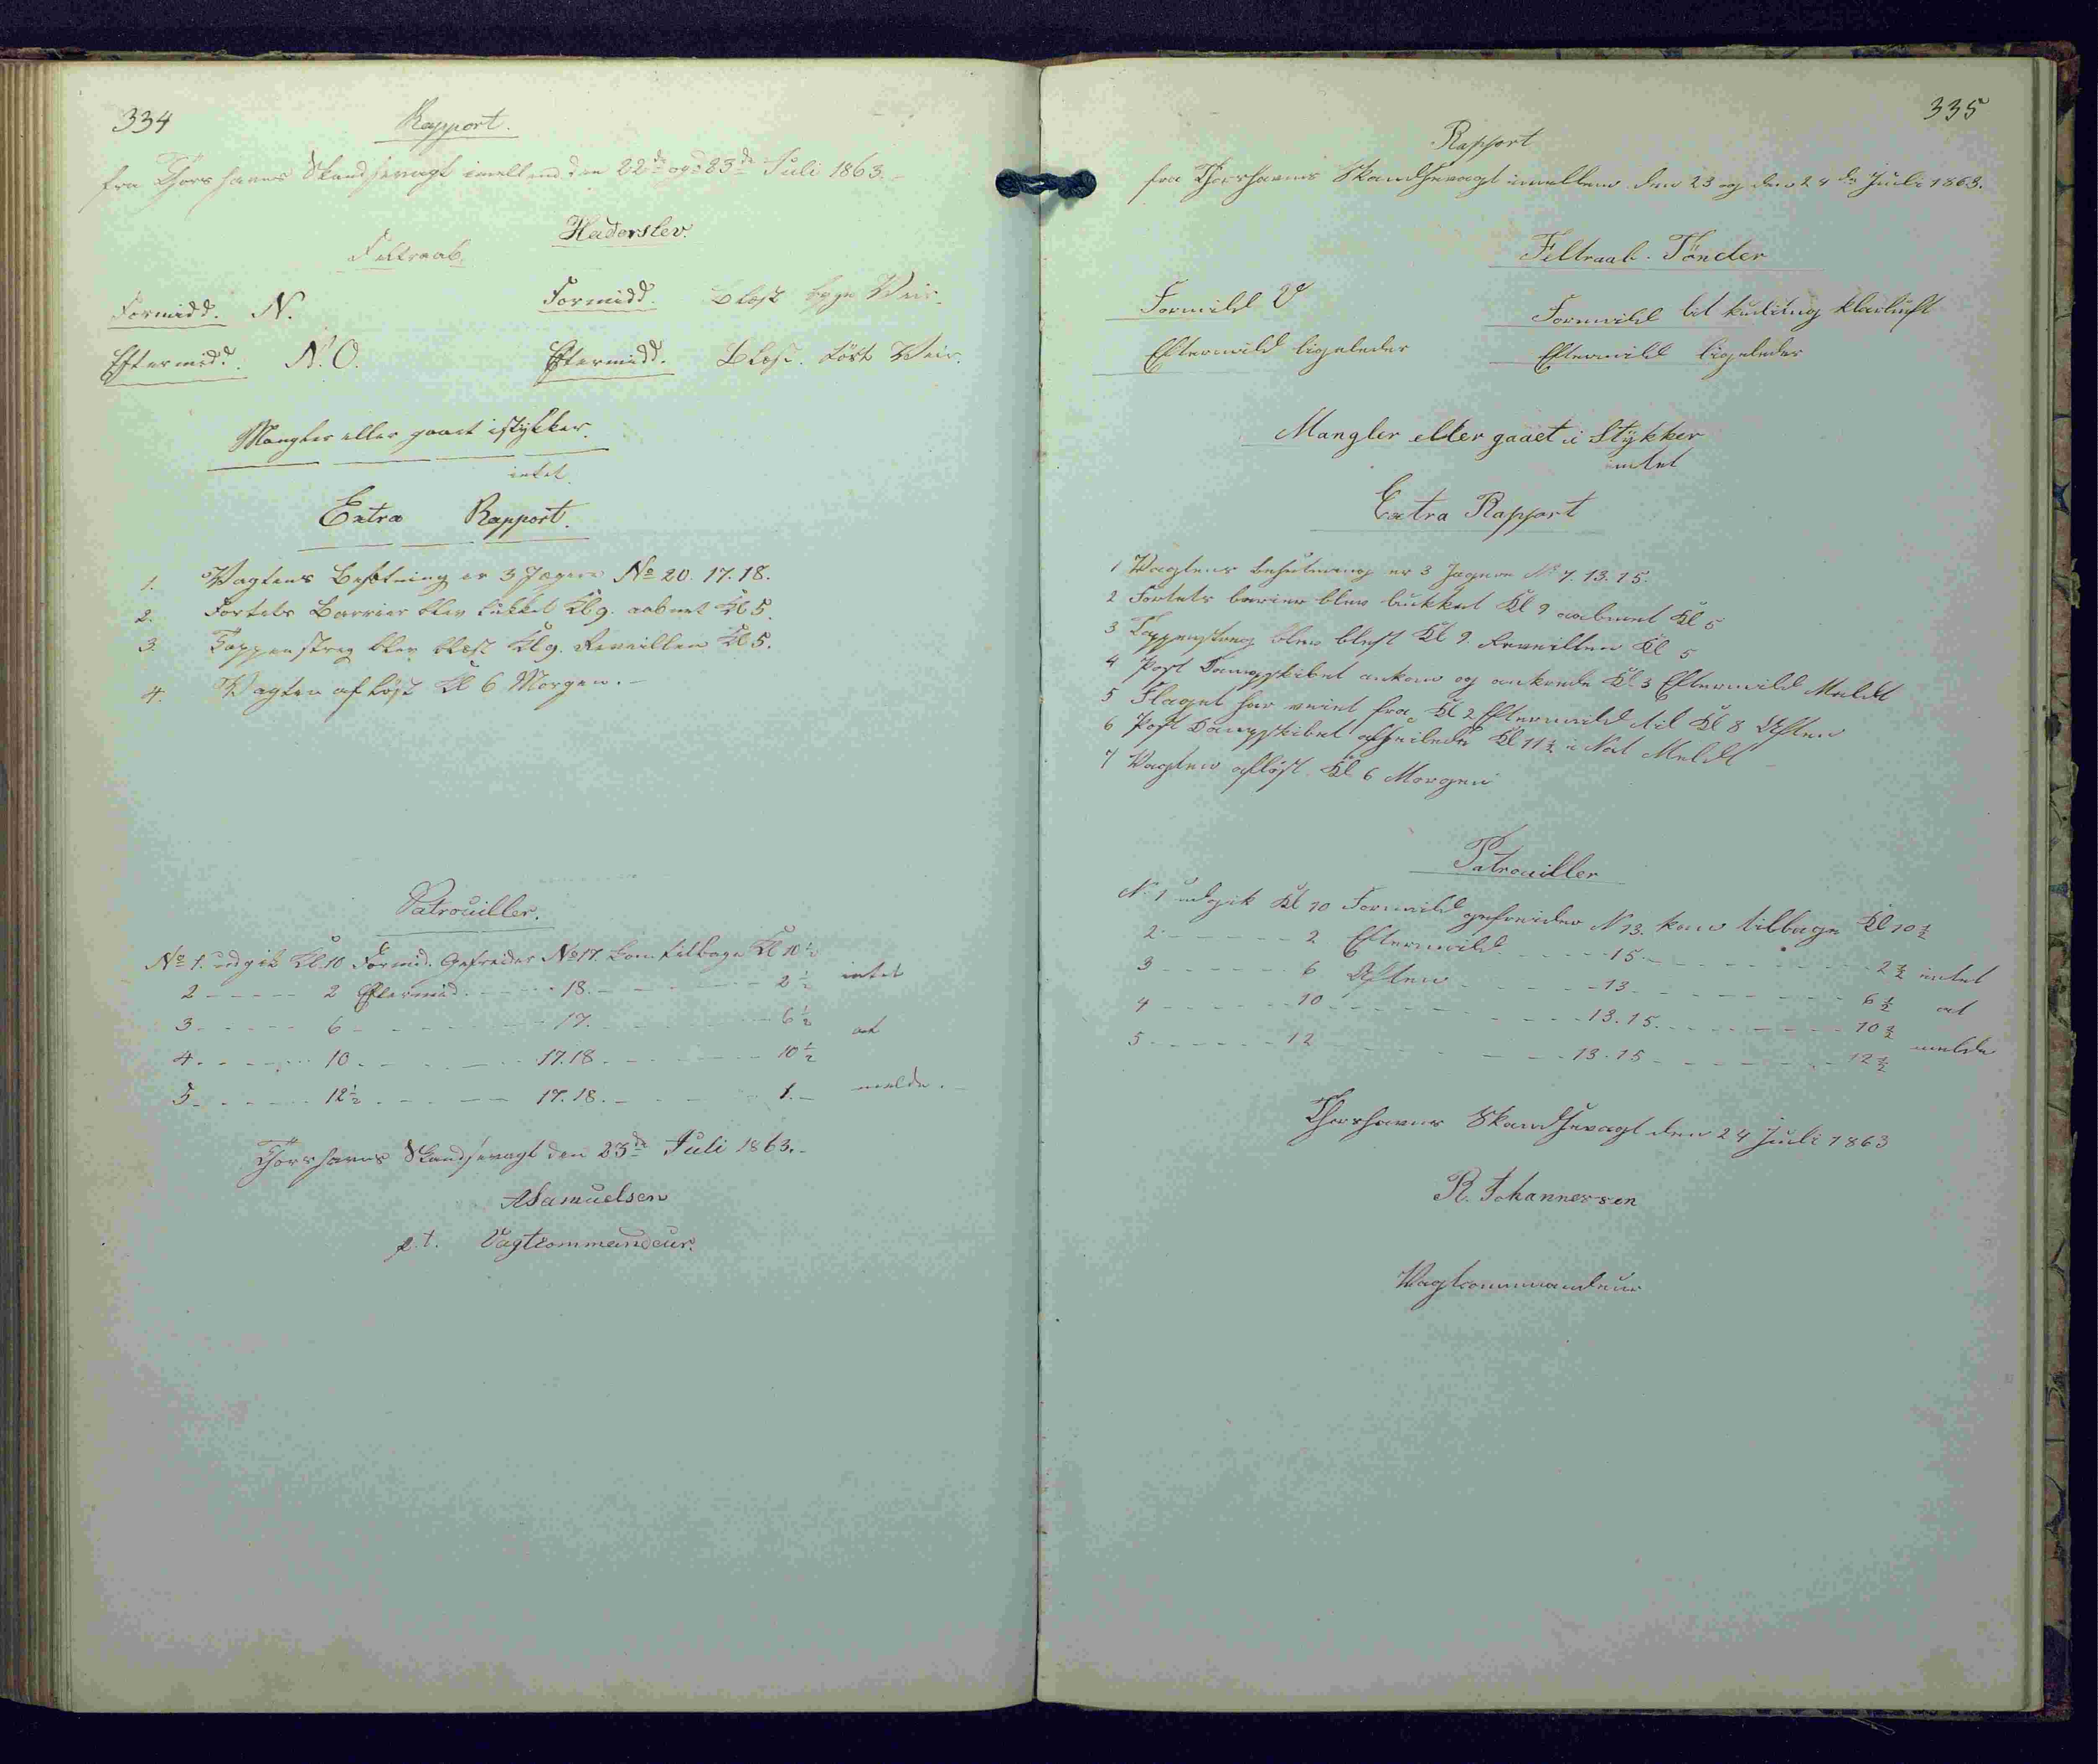 334
Rapport.
fra Thorshavns Skandsevagt imellem den 22de og 23de Juli 1863.
Feltraab. Haderslev.
Formidd. N. Formidd. Blæst Bøge Veir.
Eftermidd. N.O. Eftermidd. Blæst. Tört Veir.
Mangler eller gaaet istykker.
intet.
Extra Rapport.
1. Vagtens Besætning er 3 Jægere No 20. 17. 18.
2. Fortets Barrier blev lukket Kl 9. aabnet Kl 5.
3. Tappenstreg blev blæst Kl 9. Reveillen Kl 5.
4. Vagten aflöst Kl 6 Morgen.
Patrouiller.
No 1. udgik Kl. 10 Formid. Gefreider No 17. kom tilbage Kl 10 ½
2 - - - - - 2 Eftermid. - - - - 18. - - - - - - 2 ½ intet
3 - - - - - 6 - - - - - - - 17. - - - - - - 6 ½
at
4. - - - - - 10. - - - - - - 17.18. - - - - - - 10 ½
5 - - - - - 12½ - - - - - - 17.18. - - - - - 1. - melde.
Thorshavns Skandsevagt den 23de Juli 1863.
ASamuelsen
p.t. Vagtcommandeur.
335
Rapport
fra Thorshavns Skandsevagt imellem den 23 og den 24de Juli 1863.
Feltraab. Tönder
Formidd V Formidd lit kuling klarluft
Eftermidd ligeledes Eftermidd ligeledes
Mangler eller gaaet i Stykker
intet
Extra Rapport
1 Vagtens besetning er 3 Jægere No 7. 13. 15.
2 Fortets barier blev lukket Kl 9 aabnet Kl 5
3 Tappenstreg blev blest Kl 9. Reveillen Kl 5
4 Post Dampskibet ankom og ankrede Kl. 3 Eftermidd Meldt
5 Flaget har veiet fra Kl 2 Eftermidd til Kl 8 Aften
6 Post Dampskibet afseilede Kl 11½ i Nat Meldt
7 Vagten aflöst Kl 6 Morgen
Patrouiller
No 1 udgik Kl 10 Formidd gefreider N 13. kom tilbage Kl 10 ½
2 - - - - - - 2 Eftermidd - - - - - 15. - - - - - - - 2 ½ intet
3 - - - - - - 6 Aften - - - - - 13 - - - - - - - 6 ½ at
4 - - - - - - 10 - - - - - - - 13. 15. - - - - - - - 10 ½
melde
5 - - - - - - 12 - - - - - - 13. 15 - - - - - - - 12 ½
Thorshavns Skandsevagt den 24 Juli 1863
R. Johannessen
Vagtcommandeur